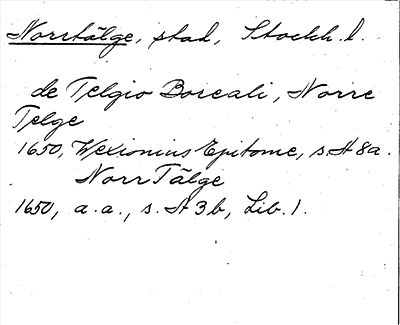 Norrtälge, stad, Stockh. l.
de Telgio Boreali, Norre
Telge
1650, Wexionius Epitome, s. A 8a.
Norr Tälge
1650, a.a., s. A 3b, Lib. 1.